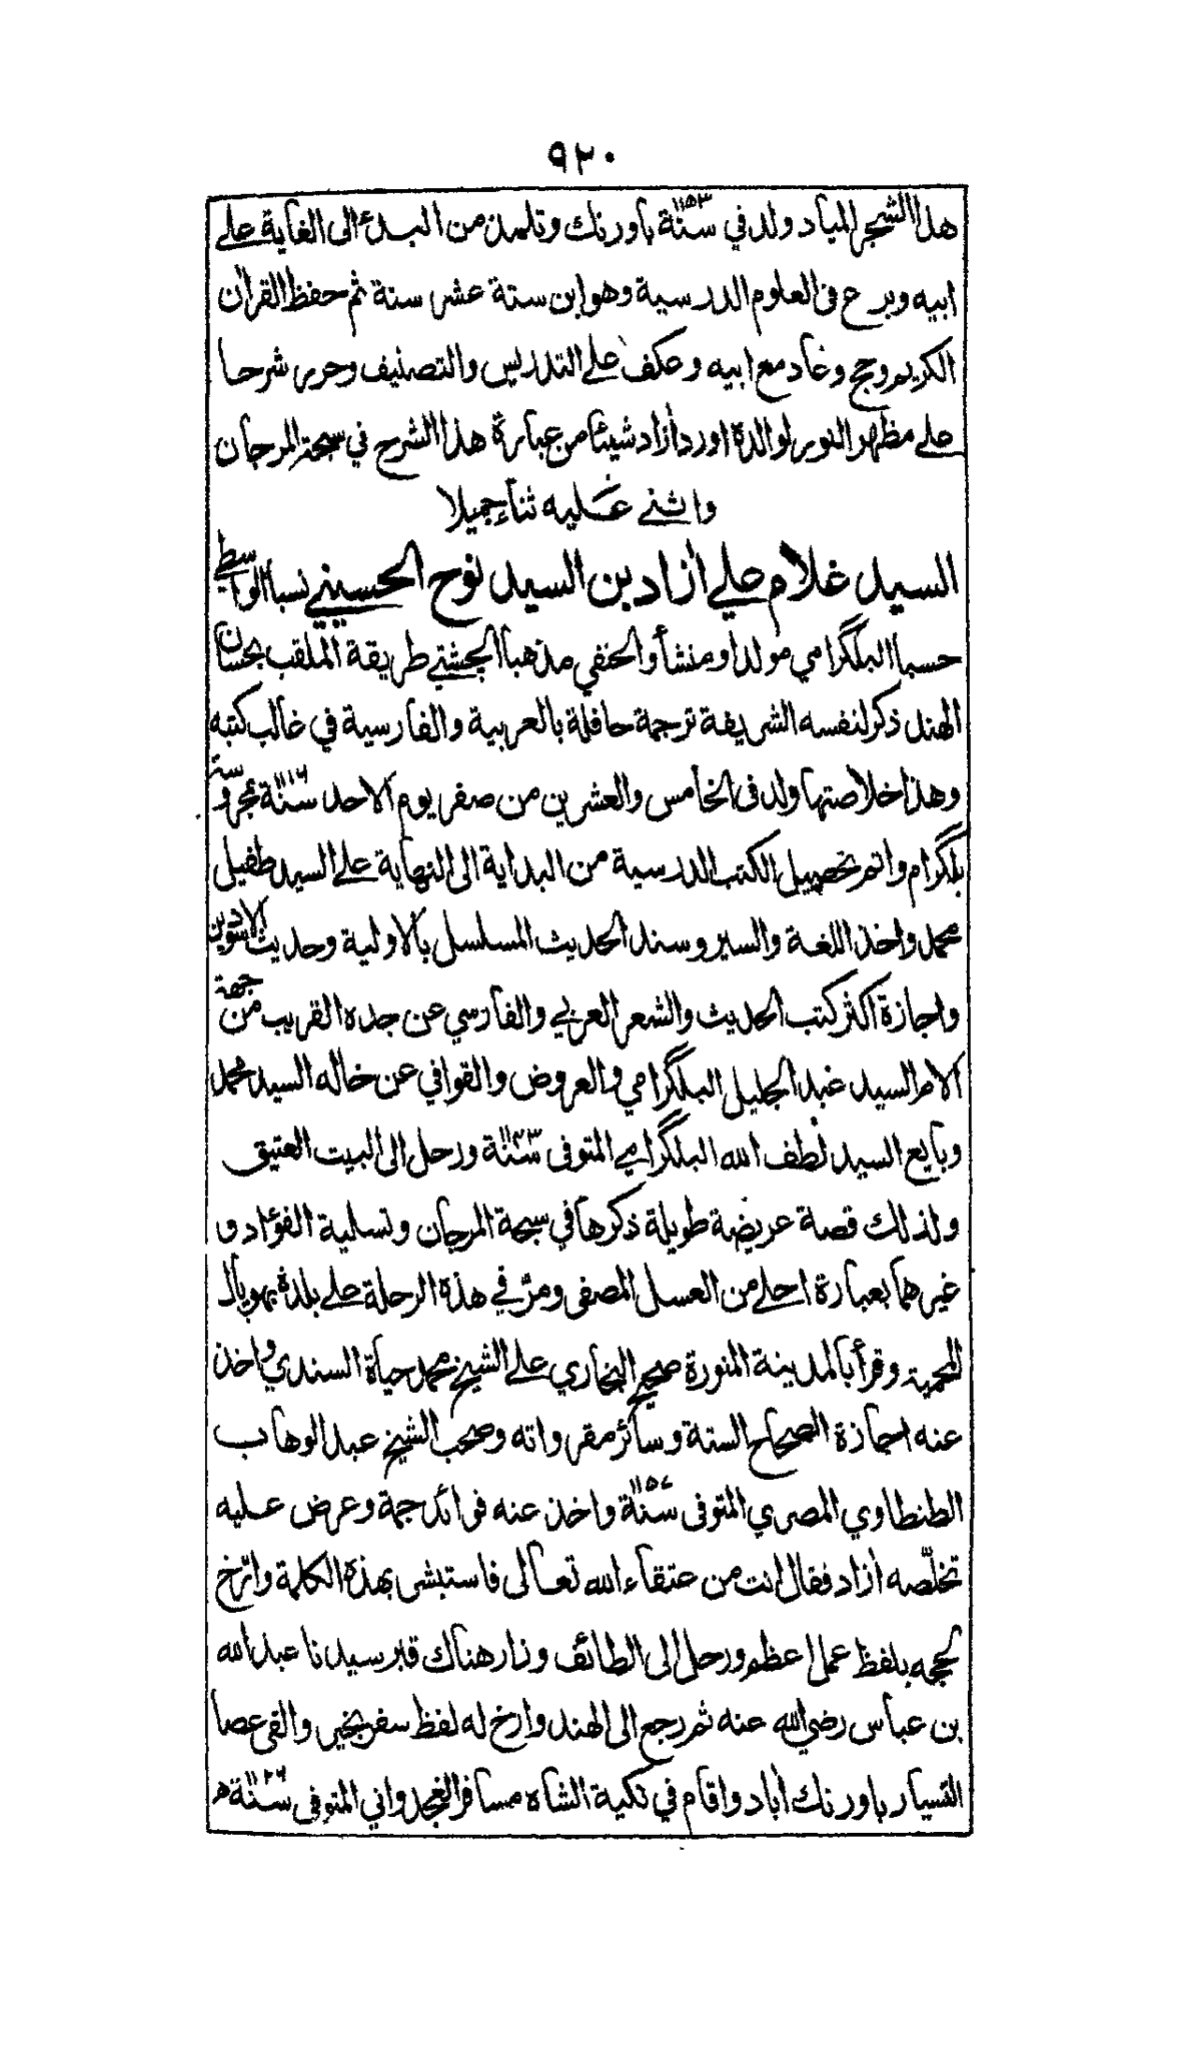 ٩٢٠
هذا الشجر المياد ولد في سنة ١١٥٣ باورنك وتلمذ من البدء الى الغاية على
ابيه وبرع فى العلوم الدرسية وهو ابن ستة عشر سنة ثم حفظ القران
الكريم وحج وعاد مع ابيه وعكف على التدريس والتصنيف وحرر شرحا
على مظهر النور لوالدة اورد أزاد شيئا من عبارة هذا الشرح في سبحة المرجان
واثنى عليه ثناء جميلا
السيد غلام علي أزاد بن السيد نوح الحسيني نسبا الواسطي
حسبا البلگرامي مولدا ومنشأ والحنفي مذهبا الچشتي طريقة الملقب بحسان
الهند ذكر لنفسه الشريفة ترجمة حافلة بالعربية والفارسية في غالب كتبه
وهذا خلاصتها ولد فى الخامس والعشرين من صفر يوم الاحد سنة ١١١٦ بمحروسة
بلگرام واتم تحصيل الكتب الدرسية من البداية الى النهاية على السيد طفيل
محمد واخذ اللغة والسير وسند الحديث المسلسل بالاولية وحديث الاسودين
واجازة اكثر كتب الحديث والشعر العربي والفارسي عن جده القريب من جهة
الام السيد عبد الجليل البلگرامي والعروض والقوافي عن خاله السيد محمد
وبايع السيد لطف الله البلگرامي المتوفى سنة ١١٤٣ ورحل الى البيت العتيق
ولذلك قصة عريضة طويلة ذكرها في سبحة المرجان وتسلية الفؤاد و
غيرهما بعبارة احلى من العسل المصفى ومرّ في هذه الرحلة على بلدة بهوپال
المحمية وقرأ بالمدينة المنورة صحيح البخاري على الشيخ محمد حياة السندي واخذ
عنه اجازة الصحاح الستة وسائر مقرواته وصحب الشيخ عبد الوهاب
الطنطاوي المصري المتوفى سنة ١١٥٧ واخذ عنه فوائد جمة وعرض عليه
تخلّصه أزاد فقال انت من عتقاء الله تعالى فاستبشر بهذه الكلمة وارّخ
لحجه بلفظ عمل اعظم ورحل الى الطائف وزار هناك قبر سيدنا عبد الله
بن عباس رضي الله عنه ثم رجع الى الهند وارخ له لفظ سفر بخير والقى عصا
التسيار باورنك أباد واقام في تكية الشاه مسافر الغجدواني المتوفى سنة ١١٢٦ه